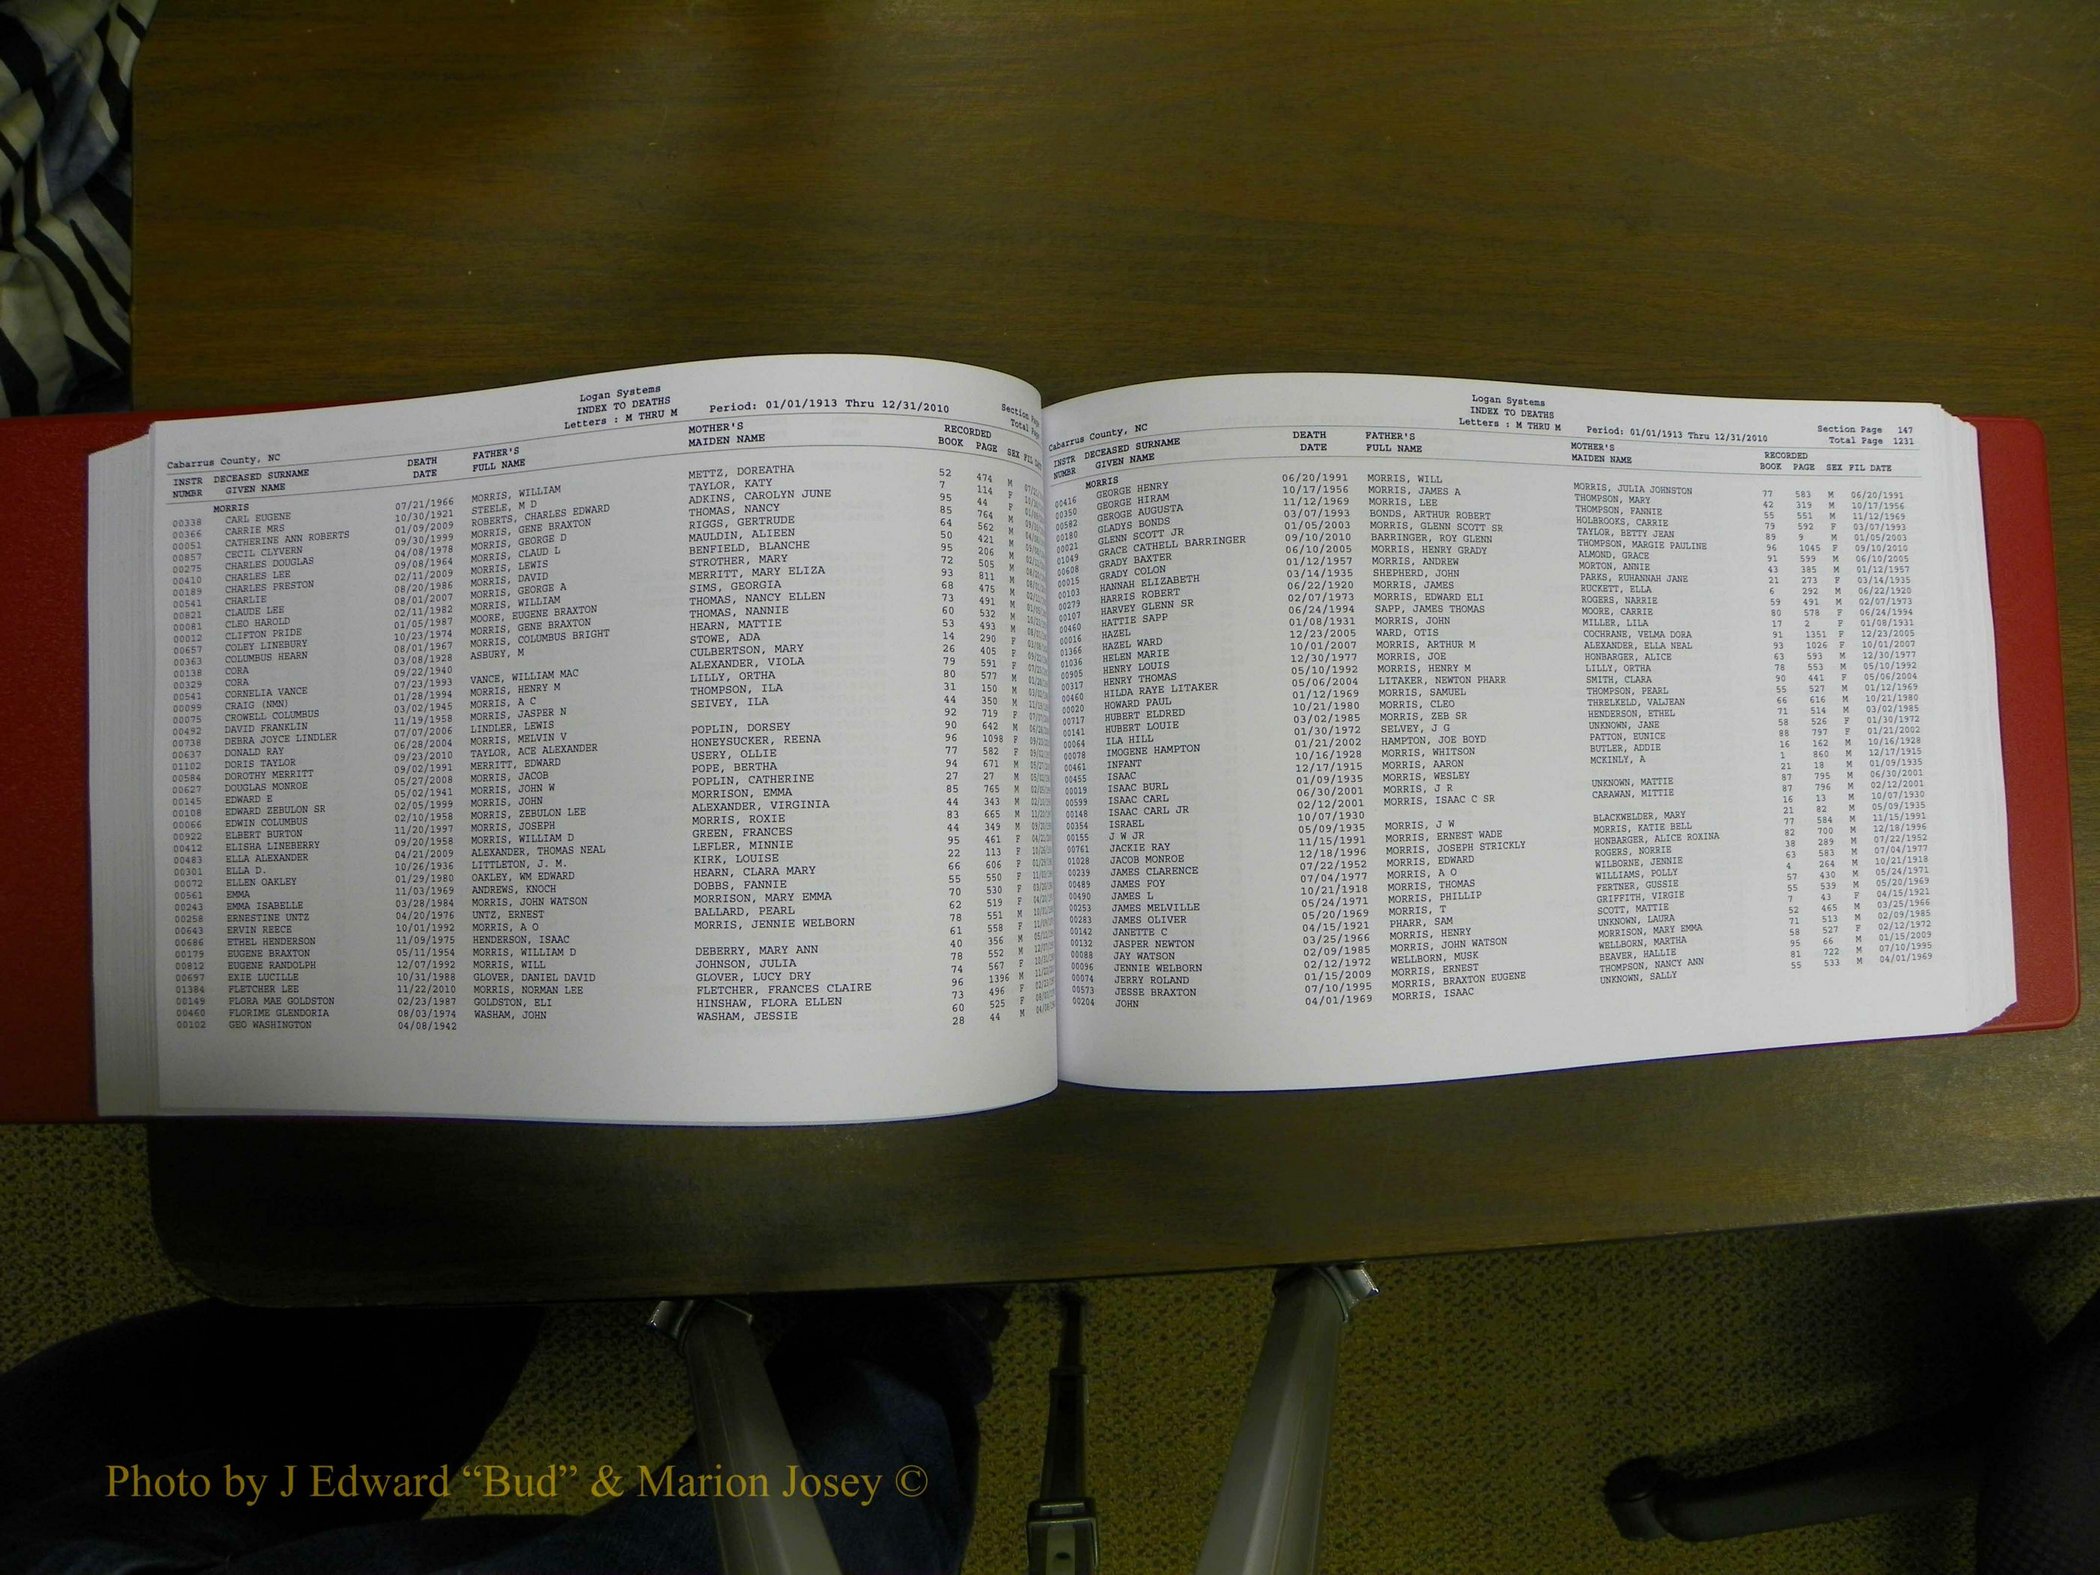 Logan Systems
INDEX TO DEATHS
Letters : M THRU M Period: 01/01/1913 Thru 12/31/2010
Section Page
Total Page
Cabarrus County, NC
INSTR DECEASED SURNAME DEATH FATHER'S MOTHER'S RECORDED
NUMBR GIVEN NAME DATE FULL NAME MAIDEN NAME BOOK PAGE SEX FIL DATE
MORRIS
00338 CARL EUGENE 07/21/1966 MORRIS, WILLIAM METTZ, DOREATHA 52 474 M
00366 CARRIE MRS 10/30/1921 STEELE, M D TAYLOR, KATY 7 114 F
00051 CATHERINE ANN ROBERTS 01/09/2009 ROBERTS, CHARLES EDWARD ADKINS, CAROLYN JUNE 95 44 F
00857 CECIL CLYVERN 09/30/1999 MORRIS, GENE BRAXTON THOMAS, NANCY 85 764 M
00275 CHARLES DOUGLAS 04/08/1978 MORRIS, GEORGE D RIGGS, GERTRUDE 64 562 M
00410 CHARLES LEE 09/08/1964 MORRIS, CLAUD L MAULDIN, ALIEEN 50 421 M
00189 CHARLES PRESTON 02/11/2009 MORRIS, LEWIS BENFIELD, BLANCHE 95 206 M
00541 CHARLIE 08/20/1986 MORRIS, DAVID STROTHER, MARY 72 505 M
00821 CLAUDE LEE 08/01/2007 MORRIS, GEORGE A MERRITT, MARY ELIZA 93 811 M
00081 CLEO HAROLD 02/11/1982 MORRIS, WILLIAM SIMS, GEORGIA 68 475 M
00012 CLIFTON PRIDE 01/05/1987 MOORE, EUGENE BRAXTON THOMAS, NANCY ELLEN 73 491 M
00657 COLEY LINEBURY 10/23/1974 MORRIS, GENE BRAXTON THOMAS, NANNIE 60 532 M
00363 COLUMBUS HEARN 08/01/1967 MORRIS, COLUMBUS BRIGHT HEARN, MATTIE 53 493 M
00138 CORA 03/08/1928 ASBURY, M STOWE, ADA 14 290 F
00329 CORA 09/22/1940 CULBERTSON, MARY 26 405 F
00541 CORNELIA VANCE 07/23/1993 VANCE, WILLIAM MAC ALEXANDER, VIOLA 79 591 F
00099 CRAIG (NMN) 01/28/1994 MORRIS, HENRY M LILLY, ORTHA 80 577 M
00075 CROWELL COLUMBUS 03/02/1945 MORRIS, A C THOMPSON, ILA 31 150 M
00492 DAVID FRANKLIN 11/19/1958 MORRIS, JASPER N SEIVEY, ILA 44 350 M
00738 DEBRA JOYCE LINDLER 07/07/2006 LINDLER, LEWIS 92 719 F
00637 DONALD RAY 06/28/2004 MORRIS, MELVIN V POPLIN, DORSEY 90 642 M
01102 DORIS TAYLOR 09/23/2010 TAYLOR, ACE ALEXANDER HONEYSUCKER, REENA 96 1098 F
00584 DOROTHY MERRITT 09/02/1991 MERRITT, EDWARD USERY, OLLIE 77 582 F
00627 DOUGLAS MONROE 05/27/2008 MORRIS, JACOB POPE, BERTHA 94 671 M
00145 EDWARD E 05/02/1941 MORRIS, JOHN W POPLIN, CATHERINE 27 27 M
00108 EDWARD ZEBULON SR 02/05/1999 MORRIS, JOHN MORRISON, EMMA 85 765 M
00066 EDWIN COLUMBUS 02/10/1958 MORRIS, ZEBULON LEE ALEXANDER, VIRGINIA 44 343 M
00922 ELBERT BURTON 11/20/1997 MORRIS, JOSEPH MORRIS, ROXIE 83 665 M
00412 ELISHA LINEBERRY 09/20/1958 MORRIS, WILLIAM D GREEN, FRANCES 44 349 M
00483 ELLA ALEXANDER 04/21/2009 ALEXANDER, THOMAS NEAL LEFLER, MINNIE 95 461 F
00301 ELLA D. 10/26/1936 LITTLETON, J. M. KIRK, LOUISE 22 113 F
00072 ELLEN OAKLEY 01/29/1980 OAKLEY, WM EDWARD HEARN, CLARA MARY 66 606 F
00561 EMMA 11/03/1969 ANDREWS, KNOCH DOBBS, FANNIE 55 550 F
00243 EMMA ISABELLE 03/28/1984 MORRIS, JOHN WATSON MORRISON, MARY EMMA 70 530 F
00258 ERNESTINE UNTZ 04/20/1976 UNTZ, ERNEST BALLARD, PEARL 62 519 F
00643 ERVIN REECE 10/01/1992 MORRIS, A O MORRIS, JENNIE WELBORN 78 551 M
00686 ETHEL HENDERSON 11/09/1975 HENDERSON, ISAAC 61 558 F
00179 EUGENE BRAXTON 05/11/1954 MORRIS, WILLIAM D DEBERRY, MARY ANN 40 356 M
00812 EUGENE RANDOLPH 12/07/1992 MORRIS, WILL JOHNSON, JULIA 78 552 M
00697 EXIE LUCILLE 10/31/1988 GLOVER, DANIEL DAVID GLOVER, LUCY DRY 74 567 F
01384 FLETCHER LEE 11/22/2010 MORRIS, NORMAN LEE FLETCHER, FRANCES CLAIRE 96 1396 M
00149 FLORA MAE GOLDSTON 02/23/1987 GOLDSTON, ELI HINSHAW, FLORA ELLEN 73 496 F
00460 FLORIME GLENDORIA 08/03/1974 WASHAM, JOHN WASHAM, JESSIE 60 525 F
00102 GEO WASHINGTON 04/08/1942 28 44 M
Logan Systems
INDEX TO DEATHS
Letters : M THRU M Period: 01/01/1913 Thru 12/31/2010
Section Page 147
Total Page 1231
Cabarrus County, NC
INSTR DECEASED SURNAME DEATH FATHER'S MOTHER'S RECORDED
NUMBR GIVEN NAME DATE FULL NAME MAIDEN NAME BOOK PAGE SEX FIL DATE
MORRIS
00416 GEORGE HENRY 06/20/1991 MORRIS, WILL MORRIS, JULIA JOHNSTON 77 583 M 06/20/1991
00350 GEORGE HIRAM 10/17/1956 MORRIS, JAMES A THOMPSON, MARY 42 319 M 10/17/1956
00582 GEROGE AUGUSTA 11/12/1969 MORRIS, LEE THOMPSON, FANNIE 55 551 M 11/12/1969
00180 GLADYS BONDS 03/07/1993 BONDS, ARTHUR ROBERT HOLBROOKS, CARRIE 79 592 F 03/07/1993
00021 GLENN SCOTT JR 01/05/2003 MORRIS, GLENN SCOTT SR TAYLOR, BETTY JEAN 89 9 M 01/05/2003
01049 GRACE CATHELL BARRINGER 09/10/2010 BARRINGER, ROY GLENN THOMPSON, MARGIE PAULINE 96 1045 F 09/10/2010
00608 GRADY BAXTER 06/10/2005 MORRIS, HENRY GRADY ALMOND, GRACE 91 599 M 06/10/2005
00015 GRADY COLON 01/12/1957 MORRIS, ANDREW MORTON, ANNIE 43 385 M 01/12/1957
00103 HANNAH ELIZABETH 03/14/1935 SHEPHERD, JOHN PARKS, RUHANNAH JANE 21 273 F 03/14/1935
00279 HARRIS ROBERT 06/22/1920 MORRIS, JAMES RUCKETT, ELLA 6 292 M 06/22/1920
00107 HARVEY GLENN SR 02/07/1973 MORRIS, EDWARD ELI ROGERS, NARRIE 59 491 M 02/07/1973
00460 HATTIE SAPP 06/24/1994 SAPP, JAMES THOMAS MOORE, CARRIE 80 578 F 06/24/1994
00016 HAZEL 01/08/1931 MORRIS, JOHN MILLER, LILA 17 2 F 01/08/1931
01366 HAZEL WARD 12/23/2005 WARD, OTIS COCHRANE, VELMA DORA 91 1351 F 12/23/2005
01036 HELEN MARIE 10/01/2007 MORRIS, ARTHUR M ALEXANDER, ELLA NEAL 93 1026 F 10/01/2007
00905 HENRY LOUIS 12/30/1977 MORRIS, JOE HONBARGER, ALICE 63 593 M 12/30/1977
00317 HENRY THOMAS 05/10/1992 MORRIS, HENRY M LILLY, ORTHA 78 553 M 05/10/1992
00460 HILDA RAYE LITAKER 05/06/2004 LITAKER, NEWTON PHARR SMITH, CLARA 90 441 F 05/06/2004
00020 HOWARD PAUL 01/12/1969 MORRIS, SAMUEL THOMPSON, PEARL 55 527 M 01/12/1969
00717 HUBERT ELDRED 10/21/1980 MORRIS, CLEO THRELKELD, VALJEAN 66 616 M 10/21/1980
00141 HUBERT LOUIE 03/02/1985 MORRIS, ZEB SR HENDERSON, ETHEL 71 514 M 03/02/1985
00064 ILA HILL 01/30/1972 SELVEY, J G UNKNOWN, JANE 58 526 F 01/30/1972
00078 IMOGENE HAMPTON 01/21/2002 HAMPTON, JOE BOYD PATTON, EUNICE 88 797 F 01/21/2002
00461 INFANT 10/16/1928 MORRIS, WHITSON BUTLER, ADDIE 16 162 M 10/16/1928
00455 ISAAC 12/17/1915 MORRIS, AARON MCKINLY, A 1 860 M 12/17/1915
00019 ISAAC BURL 01/09/1935 MORRIS, WESLEY 21 18 M 01/09/1935
00599 ISAAC CARL 06/30/2001 MORRIS, J R UNKNOWN, MATTIE 87 795 M 06/30/2001
00148 ISAAC CARL JR 02/12/2001 MORRIS, ISAAC C SR CARAWAN, MITTIE 87 796 M 02/12/2001
00354 ISRAEL 10/07/1930 16 13 M 10/07/1930
00155 J W JR 05/09/1935 MORRIS, J W BLACKWELDER, MARY 21 82 M 05/09/1935
00761 JACKIE RAY 11/15/1991 MORRIS, ERNEST WADE MORRIS, KATIE BELL 77 584 M 11/15/1991
01028 JACOB MONROE 12/18/1996 MORRIS, JOSEPH STRICKLY HONBARGER, ALICE ROXINA 82 700 M 12/18/1996
00239 JAMES CLARENCE 07/22/1952 MORRIS, EDWARD ROGERS, NORRIE 38 289 M 07/22/1952
00489 JAMES FOY 07/04/1977 MORRIS, A O WILBORNE, JENNIE 63 583 M 07/04/1977
00490 JAMES L 10/21/1918 MORRIS, THOMAS WILLIAMS, POLLY 4 264 M 10/21/1918
00253 JAMES MELVILLE 05/24/1971 MORRIS, PHILLIP FERTNER, GUSSIE 57 430 M 05/24/1971
00283 JAMES OLIVER 05/20/1969 MORRIS, T GRIFFITH, VIRGIE 55 539 M 05/20/1969
00142 JANETTE C 04/15/1921 PHARR, SAM SCOTT, MATTIE 7 43 F 04/15/1921
00132 JASPER NEWTON 03/25/1966 MORRIS, HENRY UNKNOWN, LAURA 52 465 M 03/25/1966
00088 JAY WATSON 02/09/1985 MORRIS, JOHN WATSON MORRISON, MARY EMMA 71 513 M 02/09/1985
00096 JENNIE WELBORN 02/12/1972 WELLBORN, MUSK WELLBORN, MARTHA 58 527 F 02/12/1972
00074 JERRY ROLAND 01/15/2009 MORRIS, ERNEST BEAVER, HALLIE 95 66 M 01/15/2009
00573 JESSE BRAXTON 07/10/1995 MORRIS, BRAXTON EUGENE THOMPSON, NANCY ANN 81 722 M 07/10/1995
00204 JOHN 04/01/1969 MORRIS, ISAAC UNKNOWN, SALLY 55 533 M 04/01/1969
Photo by J Edward “Bud” & Marion Josey ©